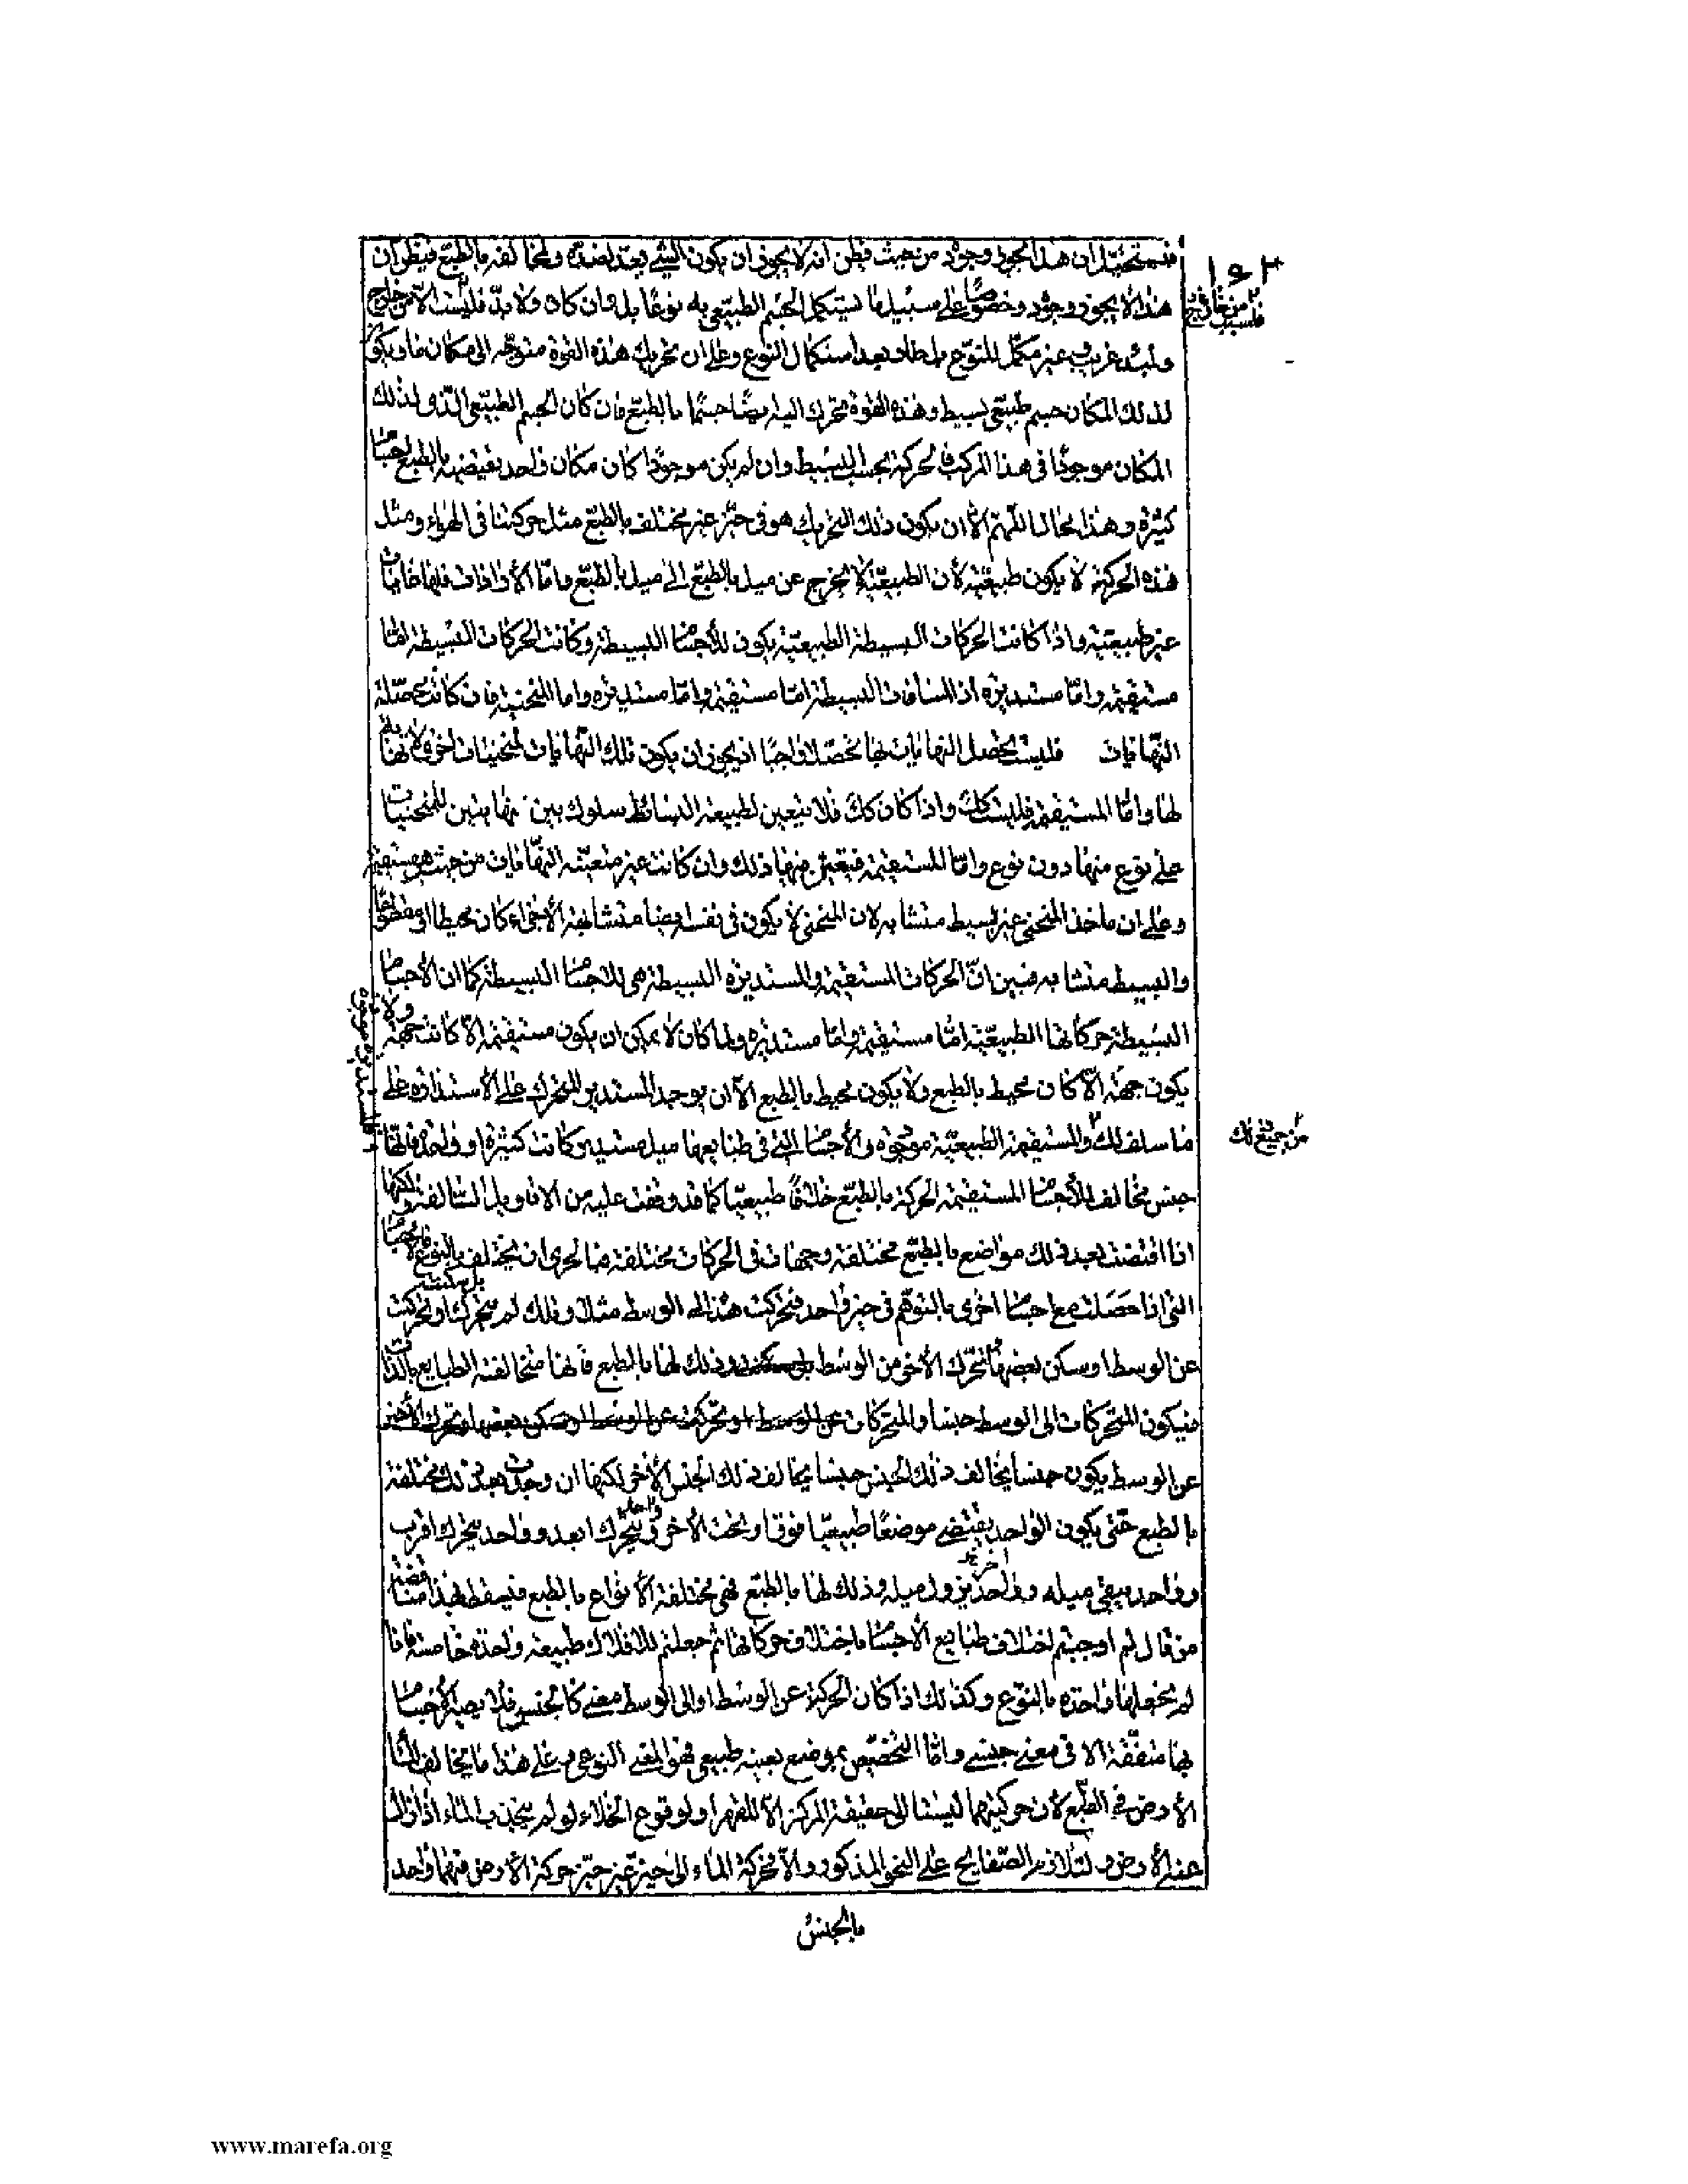 ١٦٢
فسيتخيل ان هذا يجوز وجوده من حيث فظن انه لا يجوز ان يكون الشيء بعد لضده ولمخالفه بالطبع فيظن ان
هذا لا يجوز وجود وخصوصا على سبيل ما يستكمل الجسم الطبيعي به نوعا بل وان كان ولا بد فليست الا من خارج
ولسبب غريب غير مكمل للنوع بل طار بعد استكمال النوع وعلى ان تحريك هذه القوة متوجه الى مكان ما ويكون
لذلك المكان جسم طبيعي بسيط وهذه القوة تحرك اليه ايضا جسما بالطبع فان كان الجسم الطبيعي الذي لذلك
المكان موجودا في هذا المركب فالحركة بحسب البسيط وان لم يكن موجودا كان مكان واحد يقتضيه بالطبع اجسام
كثيرة وهذا محال اللهم الا ان يكون ذلك التحريك هو في حيز غير مختلف بالطبع مثل حركتنا في الهواء ومثل
هذه الحركة لا يكون طبيعية لان الطبيعية لا تخرج عن ميل بالطبع الى ميل بالطبع واما الارادات فلها غايات
غير طبيعية واذا كانت الحركات البسيطة الطبيعية يكون للاجسام البسيطة وكانت الحركات البسيطة اما
مستقيمة واما مستديرة اذ المسافات البسيطة اما مستقيمة واما مستديرة واما المنحنية فان كانت محصلة
النهايات فليست تحصل النهايات لها تحصلا واجبا اذ يجوز ان يكون تلك النهايات لمنحنيات اخرى لا نهاية
لها واما المستقيمة فليست كك واذا كان كك فلا يتعين لطبيعة البسائط سلوك بين نهايتين للمنحنيات
على نوع منها دون نوع واما المستقيمة فيتعين منها ذلك وان كانت غير متعينة النهايات من حيث هي مستقيمة
وعلى ان ماخذ المنحني غير بسيط متشابه لان المنحني لا يكون في نفسه ايضا متشابه الاجزاء كان محيطا او مقطوعا
والبسيط متشابه فبين ان الحركات المستقيمة والمستديرة البسيطة هي للاجسام البسيطة كما ان الاجسام
البسيطة حركاتها الطبيعية اما مستقيمة واما مستديرة ولما كان لا يمكن ان يكون مستقيمة الا كانت جهة ولا
يكون جهة الا كان محيط بالطبع ولا يكون محيط بالطبع الا ان يوجد المستدير المتحرك على الاستدارة على
ما سلف لك والمستقيمة الطبيعية موجودة والاجسام التي في طبايعها ميل مستدير كانت كثيرة او واحدة فانها
من جميع ذلك
جنس مخالف للاجسام المستقيمة الحركة بالطبع خلافا طبيعيا كما قد وقفت عليه من الاقاويل السالفة ولكنها
اذا اقتضت بعد ذلك مواضع بالطبع مختلفة وجهات في الحركات مختلفة فبالحري ان يختلف بالنوع فالاجسام
التي اذا حصلت مع اجسام اخرى بالتوهم في حيز واحد فتحركت هذه الى الوسط مثلا وتلك لم يتحرك او تحركت
عن الوسط او سكن بعضها وتحرك الاخر من الوسط وذلك لها بالطبع فانها متخالفة الطبايع بالذات
فيكون المتحركات الى الوسط جنسا والمتحركات
عن الوسط يكون جنسا يخالف ذلك الجنس جنسا يخالف ذلك الجنس الاخر لكنها ان وجدت بعد ذلك مختلفة
بالطبع حتى يكون الواحد يقتضي موضعا طبيعيا فوق او تحت الاخر وواحد يتحرك ابعد وواحد يتحرك اقرب
وواحد يبقى ميله وواحد اخر يزول ميله وذلك لها بالطبع فهي مختلفة الانواع بالطبع فيسقط بهذا مناقضة
من قال لم اوجبتم اختلاف طبايع الاجسام باختلاف حركاتها ثم جعلتم للافلاك طبيعة واحدة خامسة فانا
لم نجعلها واحدة بالنوع وكذلك اذا كان الحركة عن الوسط او الى الوسط معنى كالجنس فلا يصير الاجسام
بها متفقة الا في معنى جنسي واما التخصص بموضع بعينه طبيعي فهو المعنى النوعي وعلى هذا ما يخالف الماء
الارض في الطبع لان حركتيهما ليستا الى حقيقة المركز الا للقهر او لوقوع الخلاء لو لم ينجذب الماء اذا زال
عنه الارض ولتلازم الصفايح على النحو المذكور والا فحركة الماء الى حيز غير حيز حركة الارض فهما واحد
بالجنس
www.marefa.org